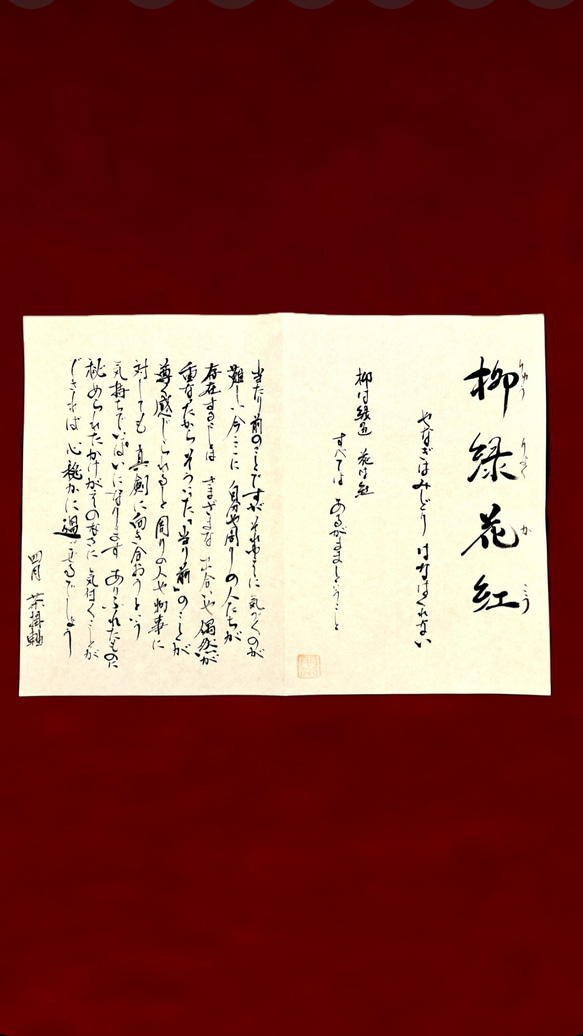 柳緑花紅
りゅう りょく か こう
やなぎはみどり はなはくれない
柳は緑色 花は紅
すべては あるがままということ
当たり前のことですが それ故に 気づくのが
難しい 今ここに 自分や周りの人たちが
存在することは さまざまな出合いや偶然が
重なたから そういった「当り前」のことが
尊く感じられると 周りの人や物事に
対しても 真剣に向き合おうという
気持ちでいぱいになります ありふれたものに
秘められたかけがえのなさに 気付くことが
できれば 心穏かに過ごせるでしょう
四月 茶掛軸